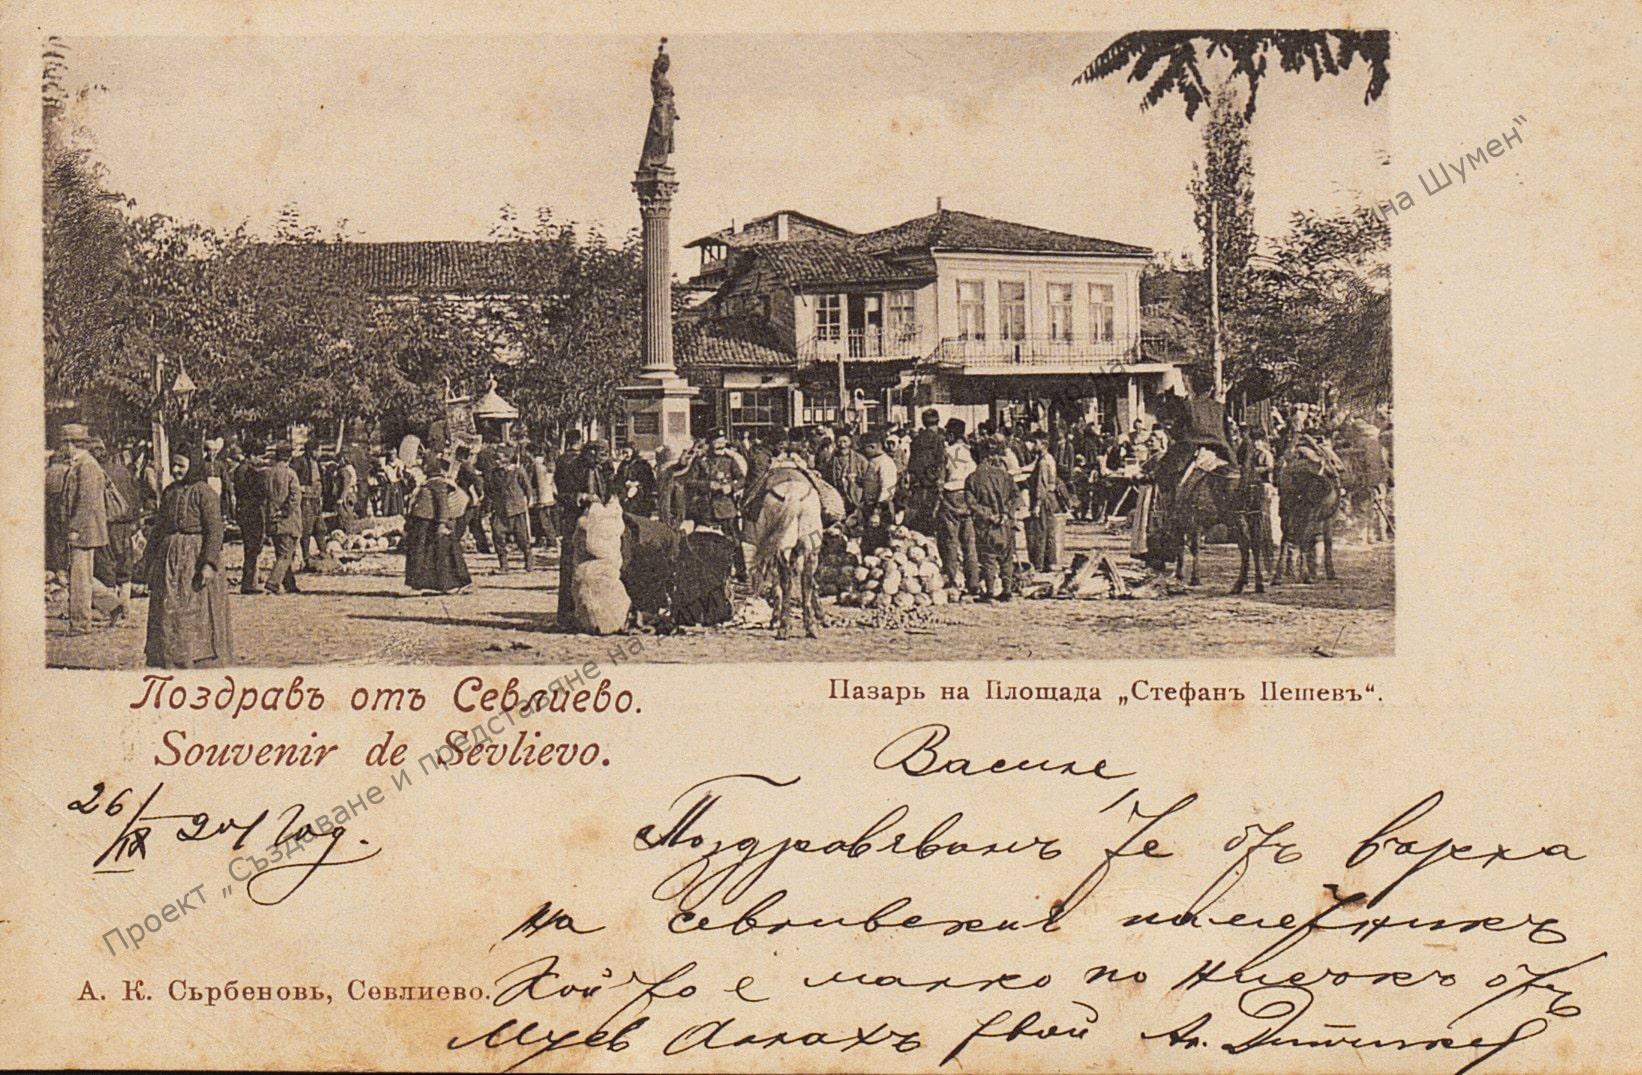 Поздравъ отъ Севлиево.
Souvenir de Sevlievo.
Пазарь на Площада „Стефанъ Пешевъ“.
26/IX 901 год.
Василе,
Поздравявамъ те отъ върха
на севлиевския паметникъ
Който е малко по нисъкъ отъ
твой Ал.
А. К. Сърбеновъ, Севлиево.
Проект „Създаване и представяне на
на Шумен“